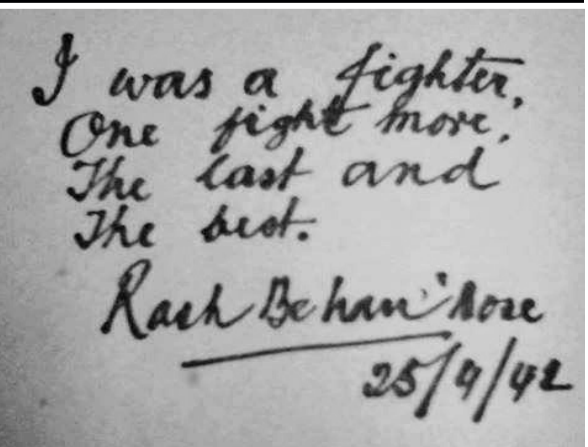 I was a fighter,
One fight more,
The last and
The best.
Rash Behari Bose
25/9/42